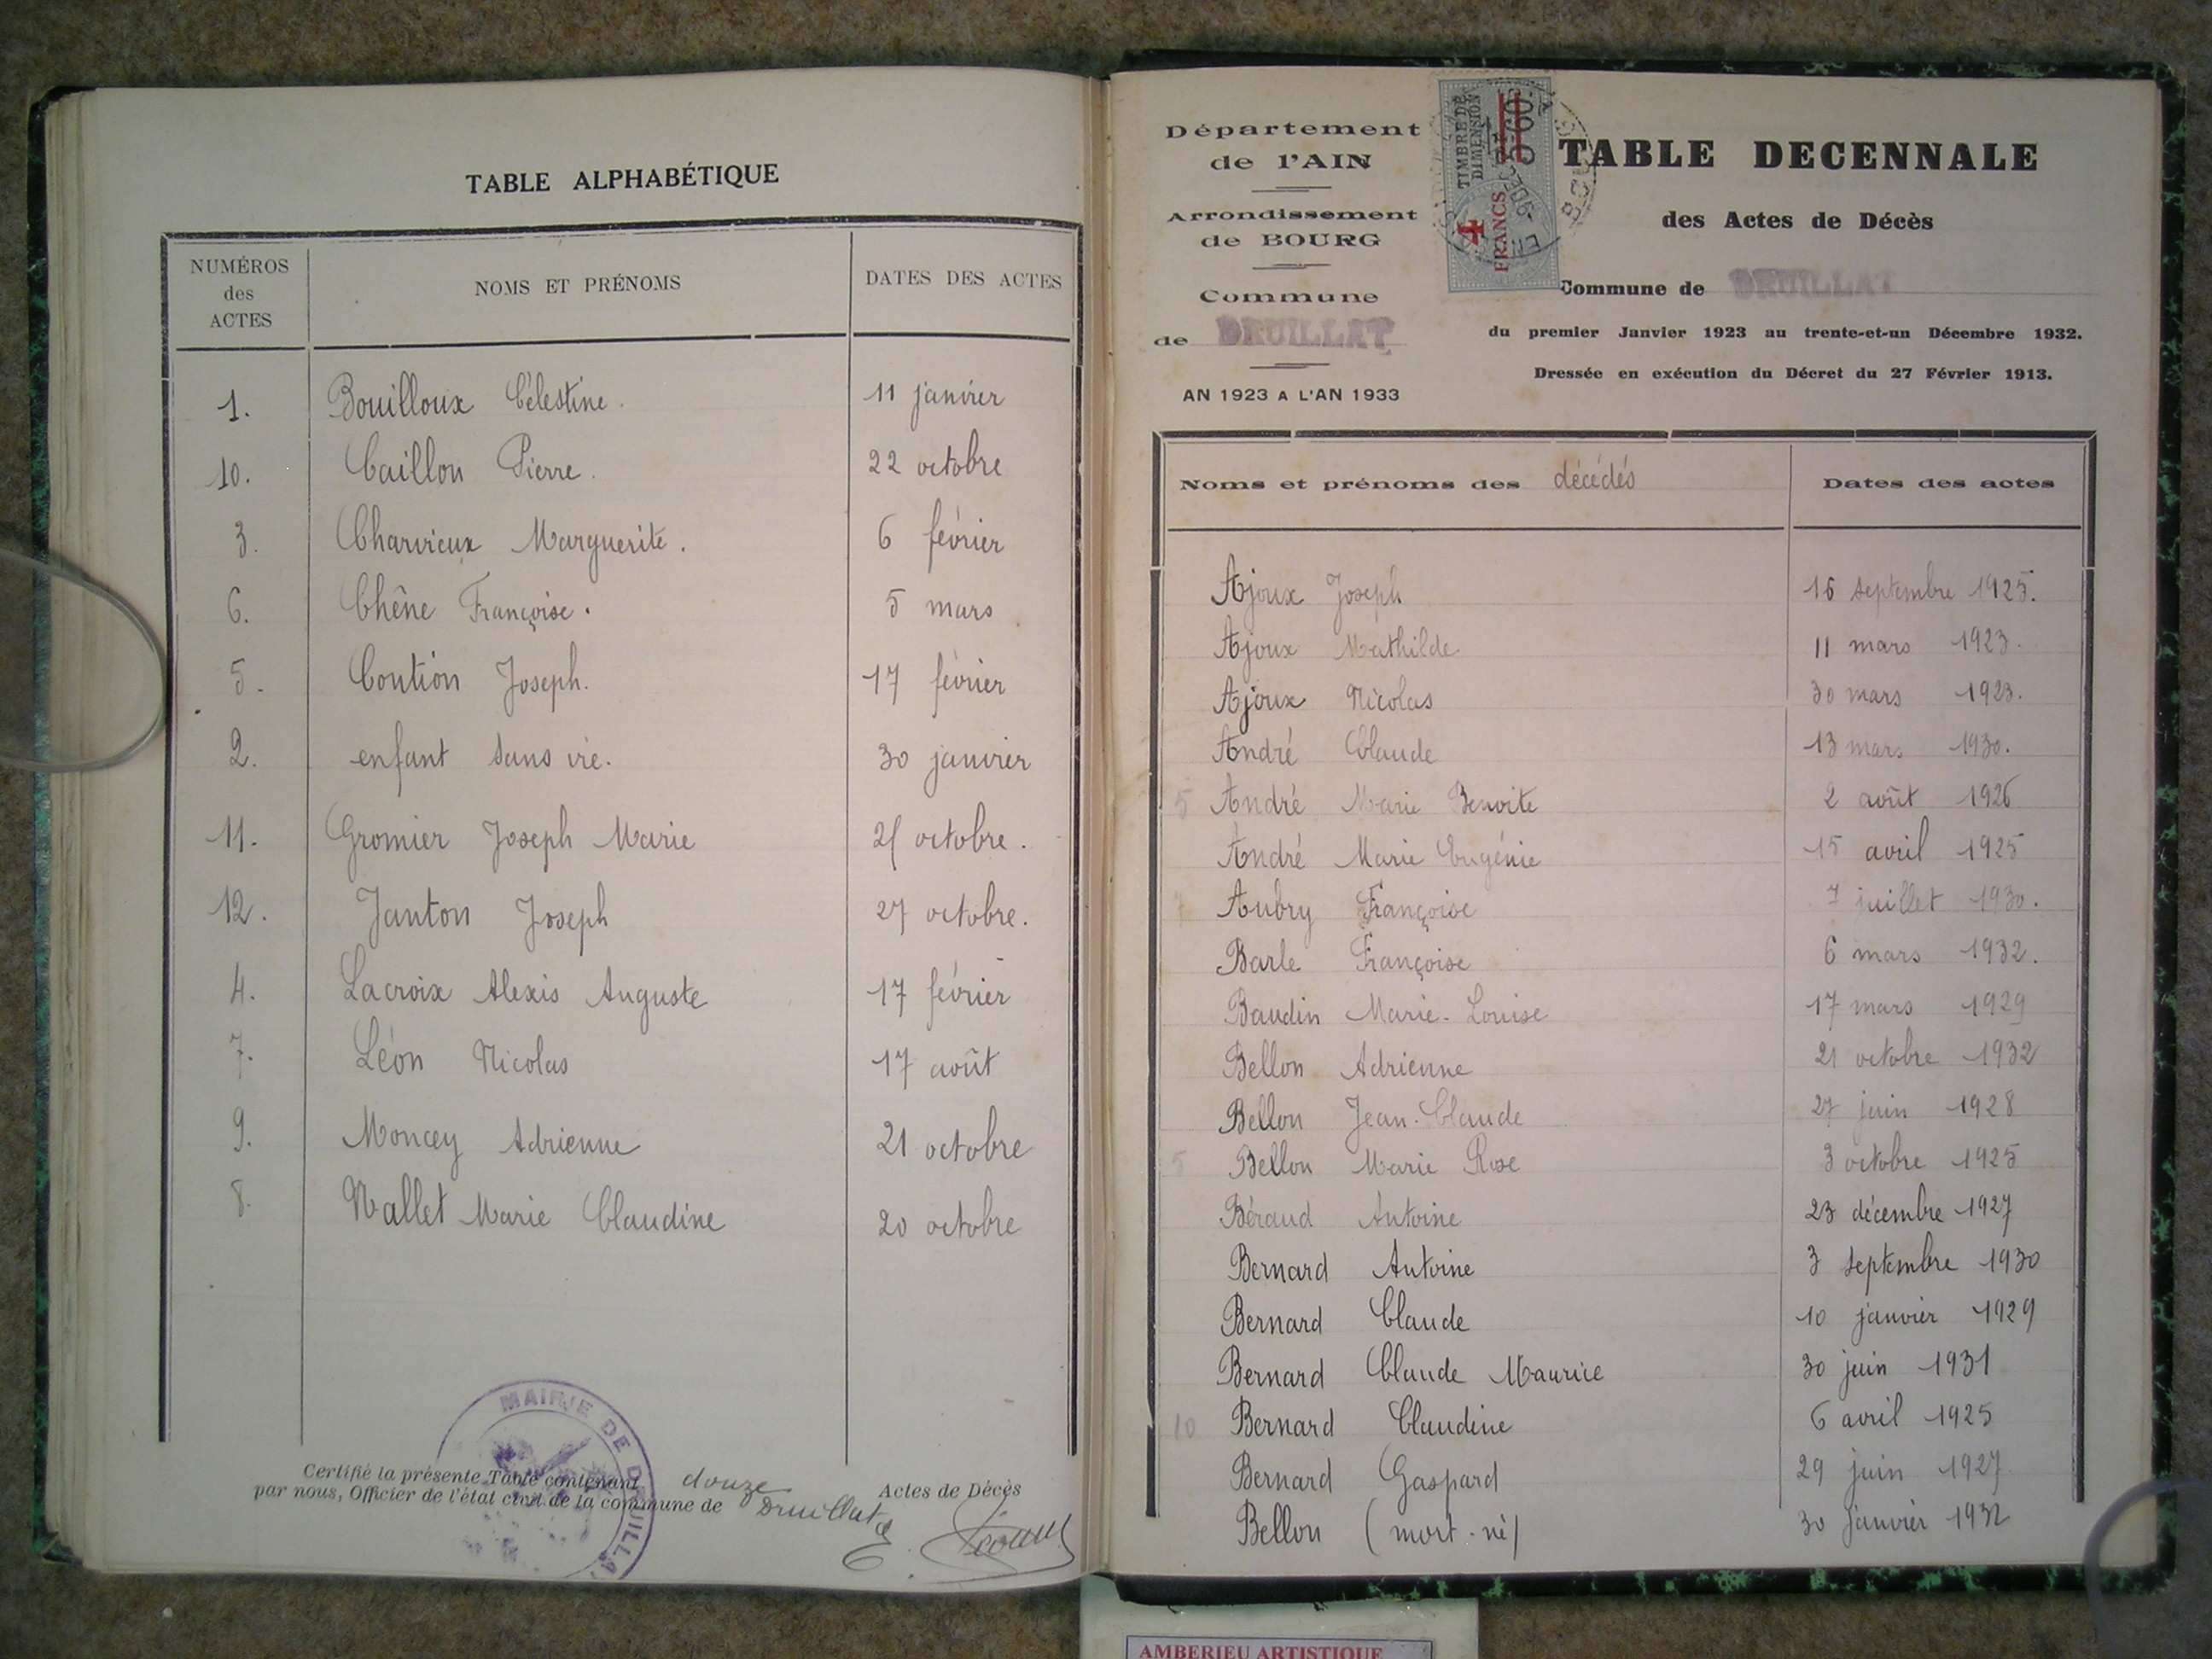 TABLE ALPHABÉTIQUE
NUMÉROS des ACTES
NOMS ET PRÉNOMS
DATES DES ACTES
1. Bouilloux Célestine. 11 janvier
10. Caillon Pierre. 22 octobre
3. Charvieux Marguerite. 6 février
6. Chêne Françoise. 5 mars
5. Coution Joseph. 17 février
2. enfant sans vie. 30 janvier
11. Gromier Joseph Marie octobre.
12. Janton Joseph 27 octobre.
4. Lacroix Alexis Auguste 17 février
7. Léon Nicolas 17 août
9. Moncey Adrienne 21 octobre
8. Nallet Marie Claudine 20 octobre
Certifié la présente Table contenant douze Actes de Décès
par nous, Officier de l'état civil de la commune de Druillat
MAIRIE DE DRUILLAT
Département
de l'AIN
Arrondissement
de BOURG
Commune
de DRUILLAT
AN 1923 A L'AN 1933
TIMBRE DE DIMENSION
4 FRANCS
TABLE DECENNALE
des Actes de Décès
Commune de DRUILLAT
du premier Janvier 1923 au trente-et-un Décembre 1932.
Dressée en exécution du Décret du 27 Février 1913.
Noms et prénoms des décédés
Dates des actes
Ajoux Joseph 16 septembre 1925.
Ajoux Mathilde 11 mars 1923.
Ajoux Nicolas 30 mars 1923.
André Claude 13 mars 1930.
5 André Marie Benoite 2 août 1926
André Marie Eugénie 15 avril 1925
Aubry Françoise 7 juillet 1930.
Barle Françoise 6 mars 1932.
Baudin Marie-Louise 17 mars 1929
Bellon Adrienne 21 octobre 1932
Bellon Jean-Claude 27 juin 1928
5 Bellon Marie Rose 3 octobre 1925
Béraud Antoine 23 décembre 1927
Bernard Antoine 3 septembre 1930
Bernard Claude 10 janvier 1929
Bernard Claude Maurice 30 juin 1931
10 Bernard Claudine 6 avril 1925
Bernard Gaspard 29 juin 1927
Bellon (mort-né) 30 janvier 1932
AMBERIEU ARTISTIQUE